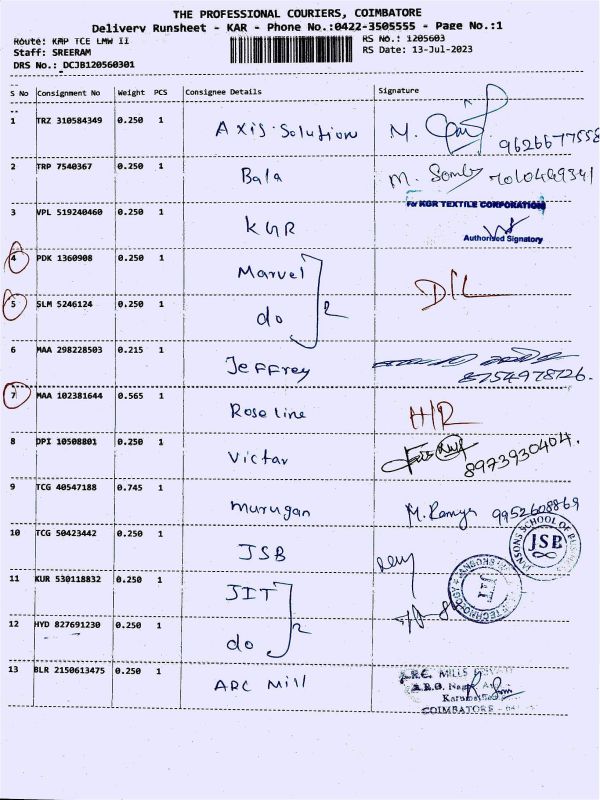 THE PROFESSIONAL COURIERS, COIMBATORE
Delivery Runsheet - KAR - Phone No.:0422-3505555 - Page No.:1
Route: KAP TCE LMW II
RS No.: 1205603
Staff: SREERAM
RS Date: 13-Jul-2023
DRS No.: DCJB120560301
S No Consignment No Weight PCS Consignee Details Signature
1 TRZ 310584349 0.250 1 AXIS Solution M.
9626677558
2 TRP 7540367 0.250 1 Bala M. 7010449341
3 VPL 519240460 0.250 1 KGR
For KGR TEXTILE CORPORATION
Authorised Signatory
4 PDK 1360908 0.250 1 Marvel
D/L
5 SLM 5246124 0.250 1 do 2
6 MAA 298228503 0.215 1 Jeffrey
8754978726.
7 MAA 102381644 0.565 1 Roseline H/R
8 DPI 10508801 0.250 1 Victor
8973930404.
9 TCG 40547188 0.745 1 murugan M. Ramya 9952608869
10 TCG 50423442 0.250 1 JSB
JANSONS SCHOOL OF BUSINESS
JSB
11 KUR 530118832 0.250 1 JIT
JIT
12 HYD 827691230 0.250 1 do 2
13 BLR 2150613475 0.250 1 ARC Mill
A.R.C. MILLS
COIMBATORE